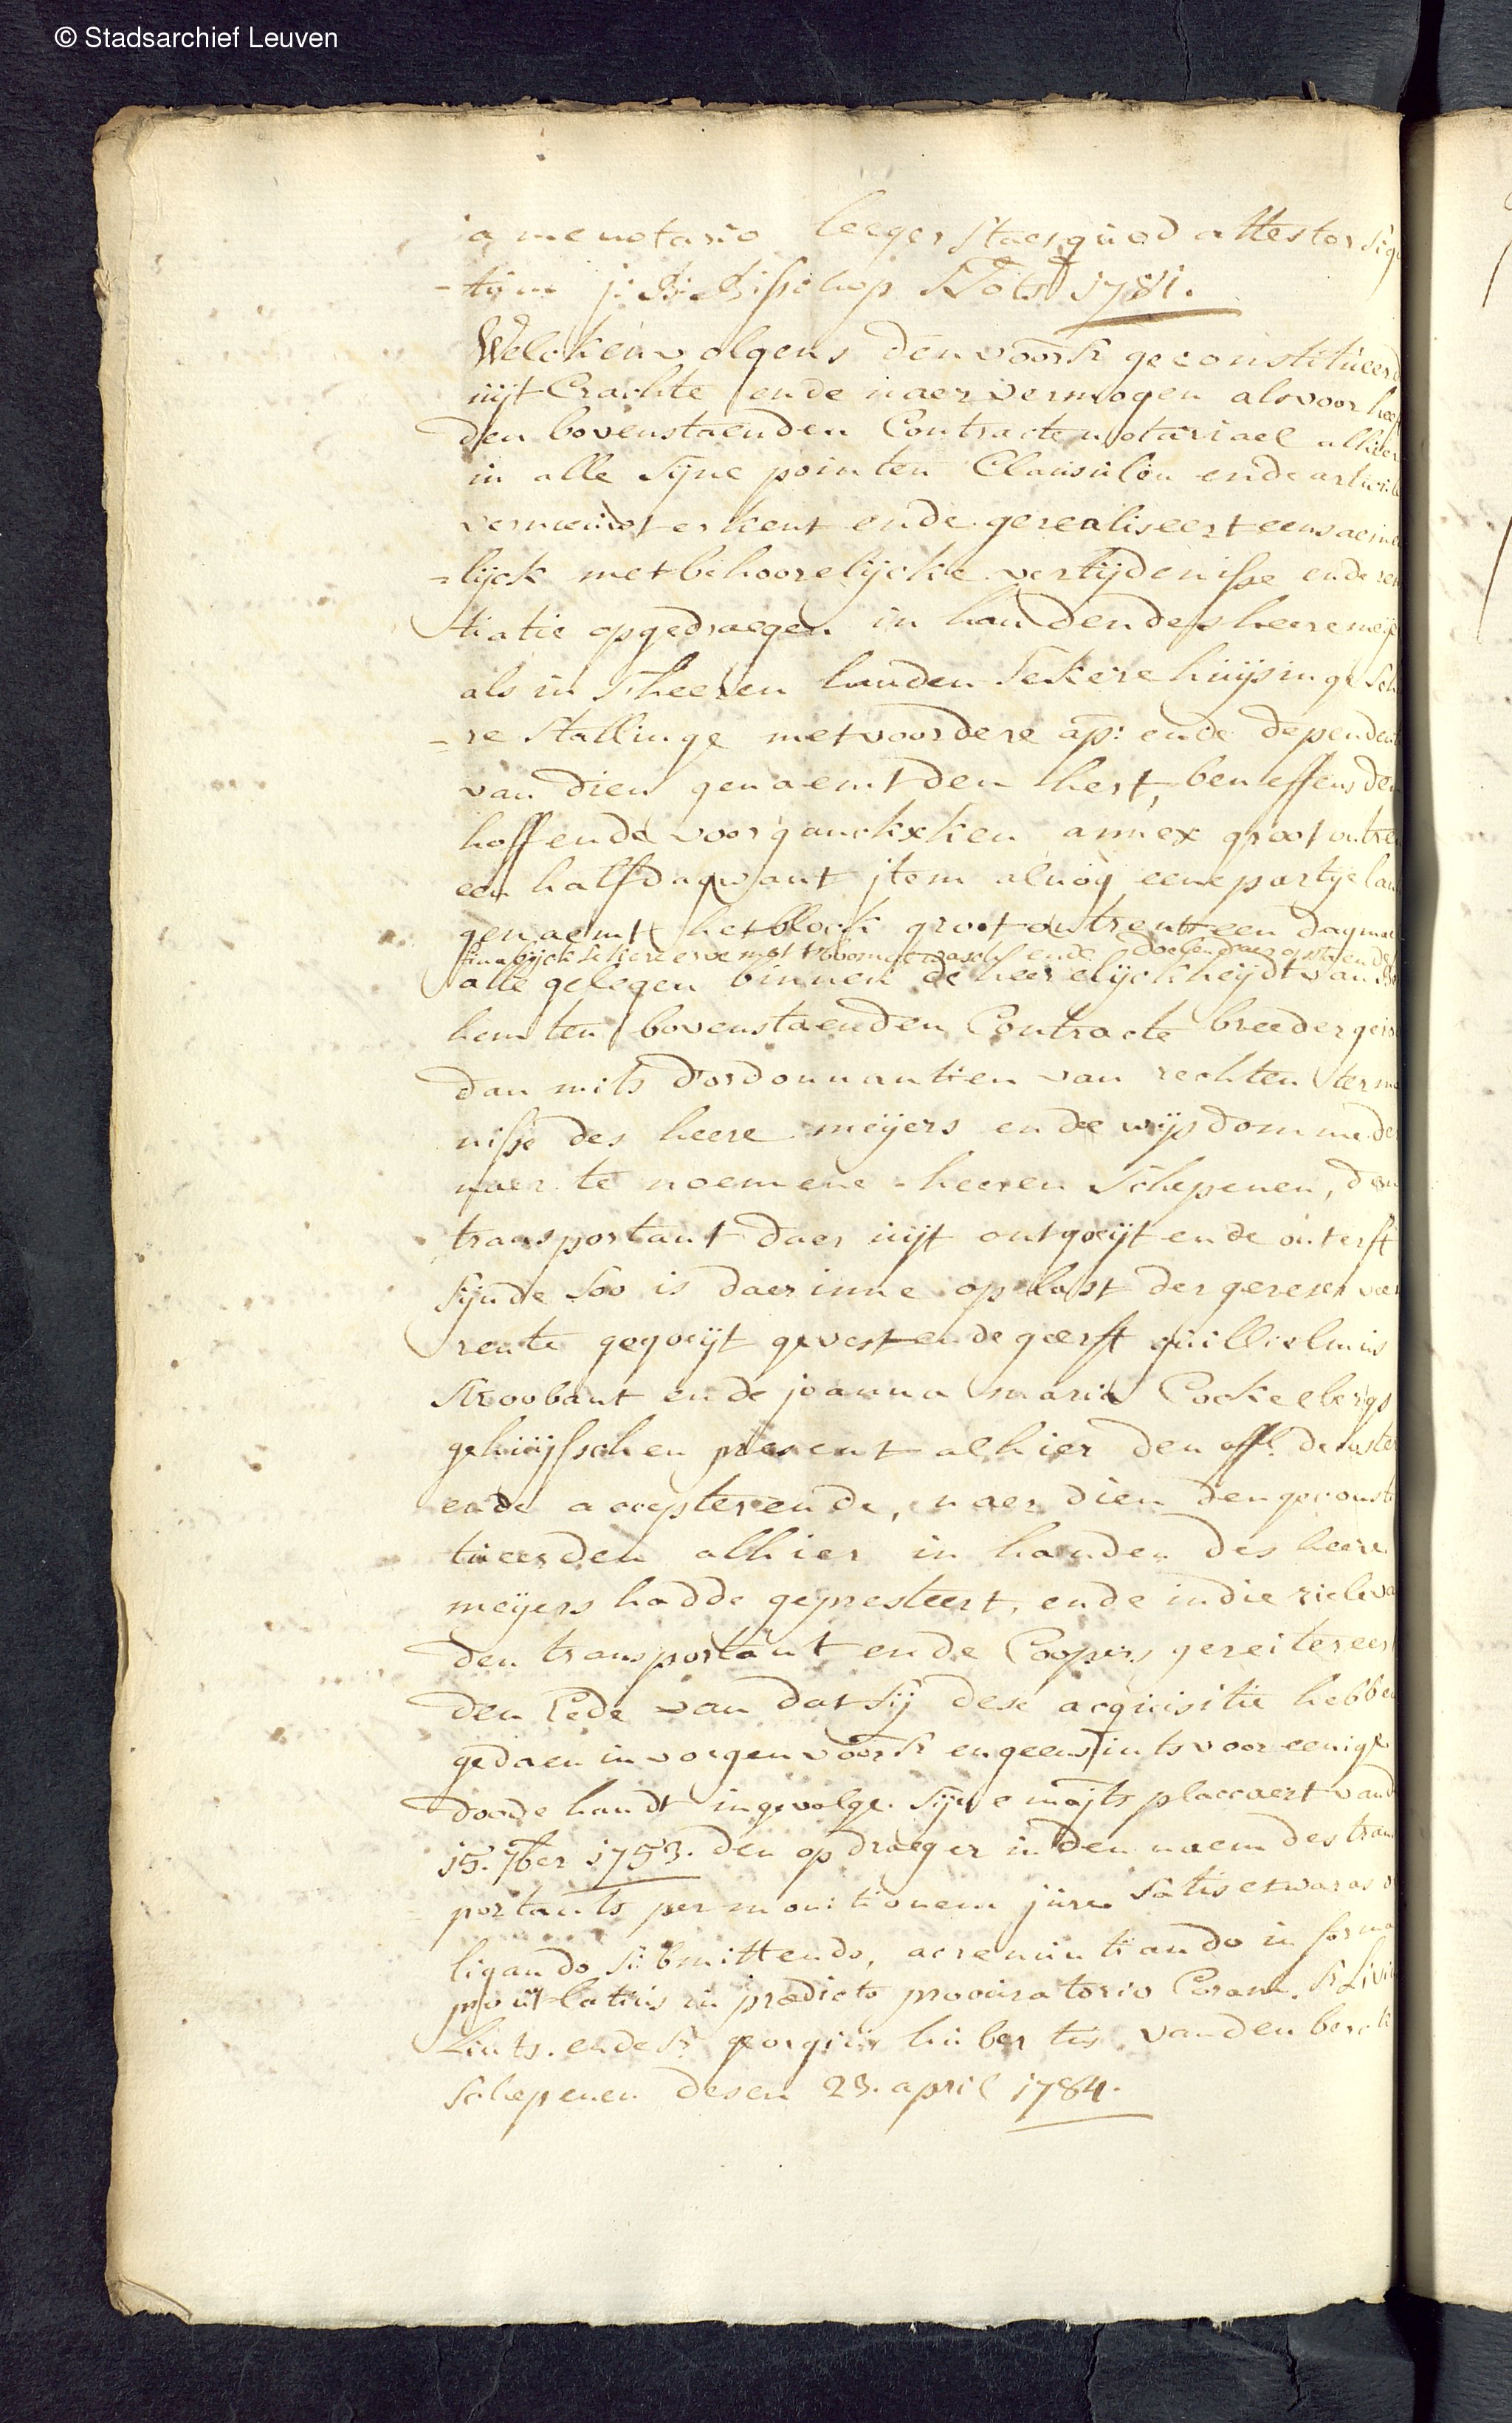 © Stadsarchief Leuven
a me notario leeger staes quod attestor sig
-tum j: B: Bisschop Nots 1781.
Welckenvolgens den voors geconstitueerd
uijt Crachte ende naer vermogen als voor heef
den bovenstaenden Contracte notariael alhier
in alle sijne pointen Clausulen ende articule
vernieuwt erkent ende gerealiseert eensaeme
=lijck met behoorelijcke vertijdenisse ende ren
tiatie opgedraegen in handen des heere meije
als in sheeren handen sekere huijsinge sch
=re stallinge met voordere ap: ende dependent
van dien genaemt den hert, beneffens den
hoff ende voorganckxken annex groot ontren
een half dagwant jtem alnog eene partije lan
genaemt het block groot ontrent een dagmae
erve met t boomgewasch ende daer op staende
alle gelegen binnen de heerelijckheijdt van
hem ten bovenstaenden Contracte breeder geins
dan mits d'ordonnantien van rechten ter ma
nisse des heere meijers ende wijsdomme der
naer te noemene heeren schepenen, den
transportant daer uijt ontgoeijt ende onterft
sijnde soo is daer inne op last der geresen voor
rente gegoeijt gevest ende geerft guillielmus
Stroobant ende joanna maria Cockelbergs
gehuijsschen present alhier den
ende accepterende, naer dien den geconsti
tueerden alhier in handen des heere
meijers hadde gepresteert, ende in die ziele va
den transportant ende Coopers gereitereer
den Eede van dat sij dese acquisitie hebben
gedaen in voegen voors en geensints voor eenige
doode handt ingevolge sijne majts placcaert vand
15. 7ber 1753. den opdraeger in den naem des trans
portants per monitionem jure satis et waras o
ligando submittendo, ac renuntiando in forma
prout latius in prædicto procuratorio Coram. Sr
Lints. ende Sr georgius hubertus vanden
schepenen desen 23. april 1784.